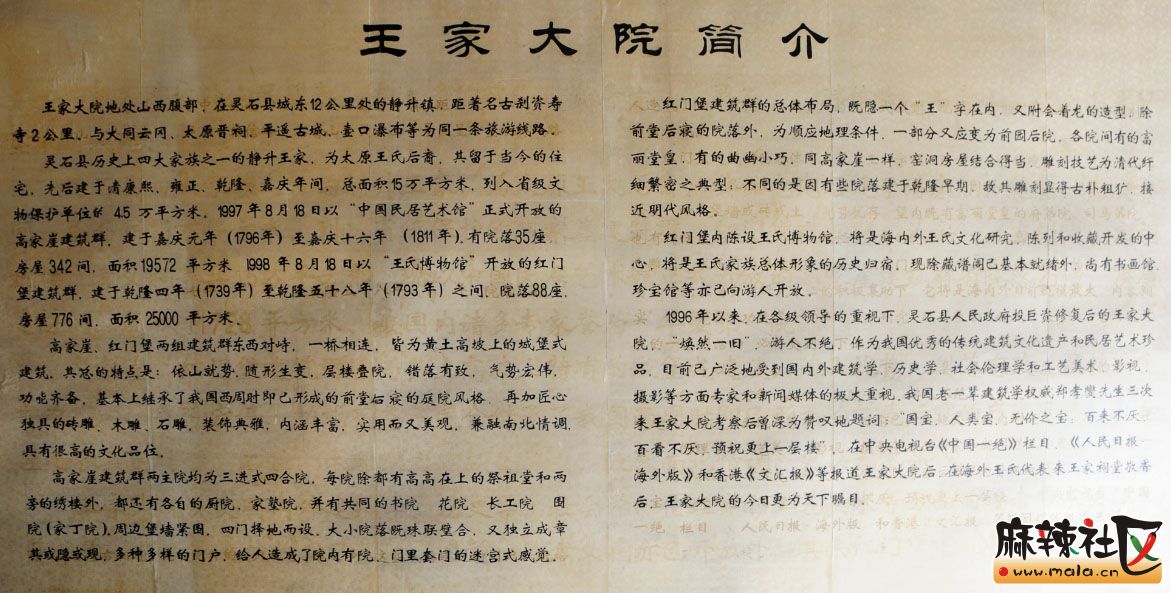 王家大院简介
王家大院地处山西腹部，在灵石县城东12公里处的静升镇，距著名古刹资寿
寺2公里，与大同云冈、太原晋祠、平遥古城、壶口瀑布等为同一条旅游线路。
灵石县历史上四大家族之一的静升王家，为太原王氏后裔，其留于当今的住
宅，先后建于清康熙、雍正、乾隆、嘉庆年间，总面积15万平方米，列入省级文
物保护单位的 4.5 万平方米，1997年8月18日以“中国民居艺术馆”正式开放的
高家崖建筑群，建于嘉庆元年（1796年）至嘉庆十六年（1811年），有院落35座，
房屋342间，面积19572 平方米 1998年8月18日以“王氏博物馆”开放的红门
堡建筑群，建于乾隆四年（1739年）至乾隆五十八年（1793年）之间，院落88座，
房屋776间，面积 25000 平方米。
高家崖、红门堡两组建筑群东西对峙，一桥相连，皆为黄土高坡上的城堡式
建筑，其总的特点是：依山就势，随形生变，层楼叠院，错落有致，气势宏伟，
功能齐备，基本上继承了我国西周时即已形成的前堂后寝的庭院风格，再加匠心
独具的砖雕、木雕、石雕，装饰典雅，内涵丰富，实用而又美观，兼融南北情调，
具有很高的文化品位。
高家崖建筑群两主院均为三进式四合院，每院除都有高高在上的祭祖堂和两
旁的绣楼外，都还有各自的厨院，家塾院，并有共同的书院 花院 长工院 围
院（家丁院），周边堡墙紧围，四门择地而设，大小院落既珠联璧合，又独立成章
其或隐或现，多种多样的门户，给人造成了院内有院，门里套门的迷宫式感觉。
红门堡建筑群的总体布局，既隐一个“王”字在内，又附会着龙的造型，除
前堂后寝的院落外，为顺应地理条件，一部分又应变为前园后院，各院间有的富
丽堂皇，有的曲幽小巧，同高家崖一样，窑洞房屋结合得当，雕刻技艺为清代纤
细繁密之典型；不同的是因有些院落建于乾隆早期，故其雕刻显得古朴粗犷，接
近明代风格。
红门堡内陈设王氏博物馆，将是海内外王氏文化研究，陈列和收藏开发的中
心，将是王氏家族总体形象的历史归宿，现除藏谱阁已基本就绪外，尚有书画馆，
珍宝馆等亦已向游人开放。
1996年以来，在各级领导的重视下，灵石县人民政府投巨资修复后的王家大
院，“焕然一旧”，游人不绝，作为我国优秀的传统建筑文化遗产和民居艺术珍
品，目前已广泛地受到国内外建筑学，历史学，社会伦理学和工艺美术，影视，
摄影等方面专家和新闻媒体的极大重视，我国老一辈建筑学权威郑孝燮先生三次
来王家大院考察后曾深为赞叹地题词：“国宝，人类宝，无价之宝；百来不厌，
百看不厌，预祝更上一层楼”，在中央电视台《中国一绝》栏目，《人民日报—
海外版》和香港《文汇报》等报道王家大院后，在海外王氏代表来王家祠堂敬香
后，王家大院的今日更为天下瞩目。
麻辣社区
www.mala.cn